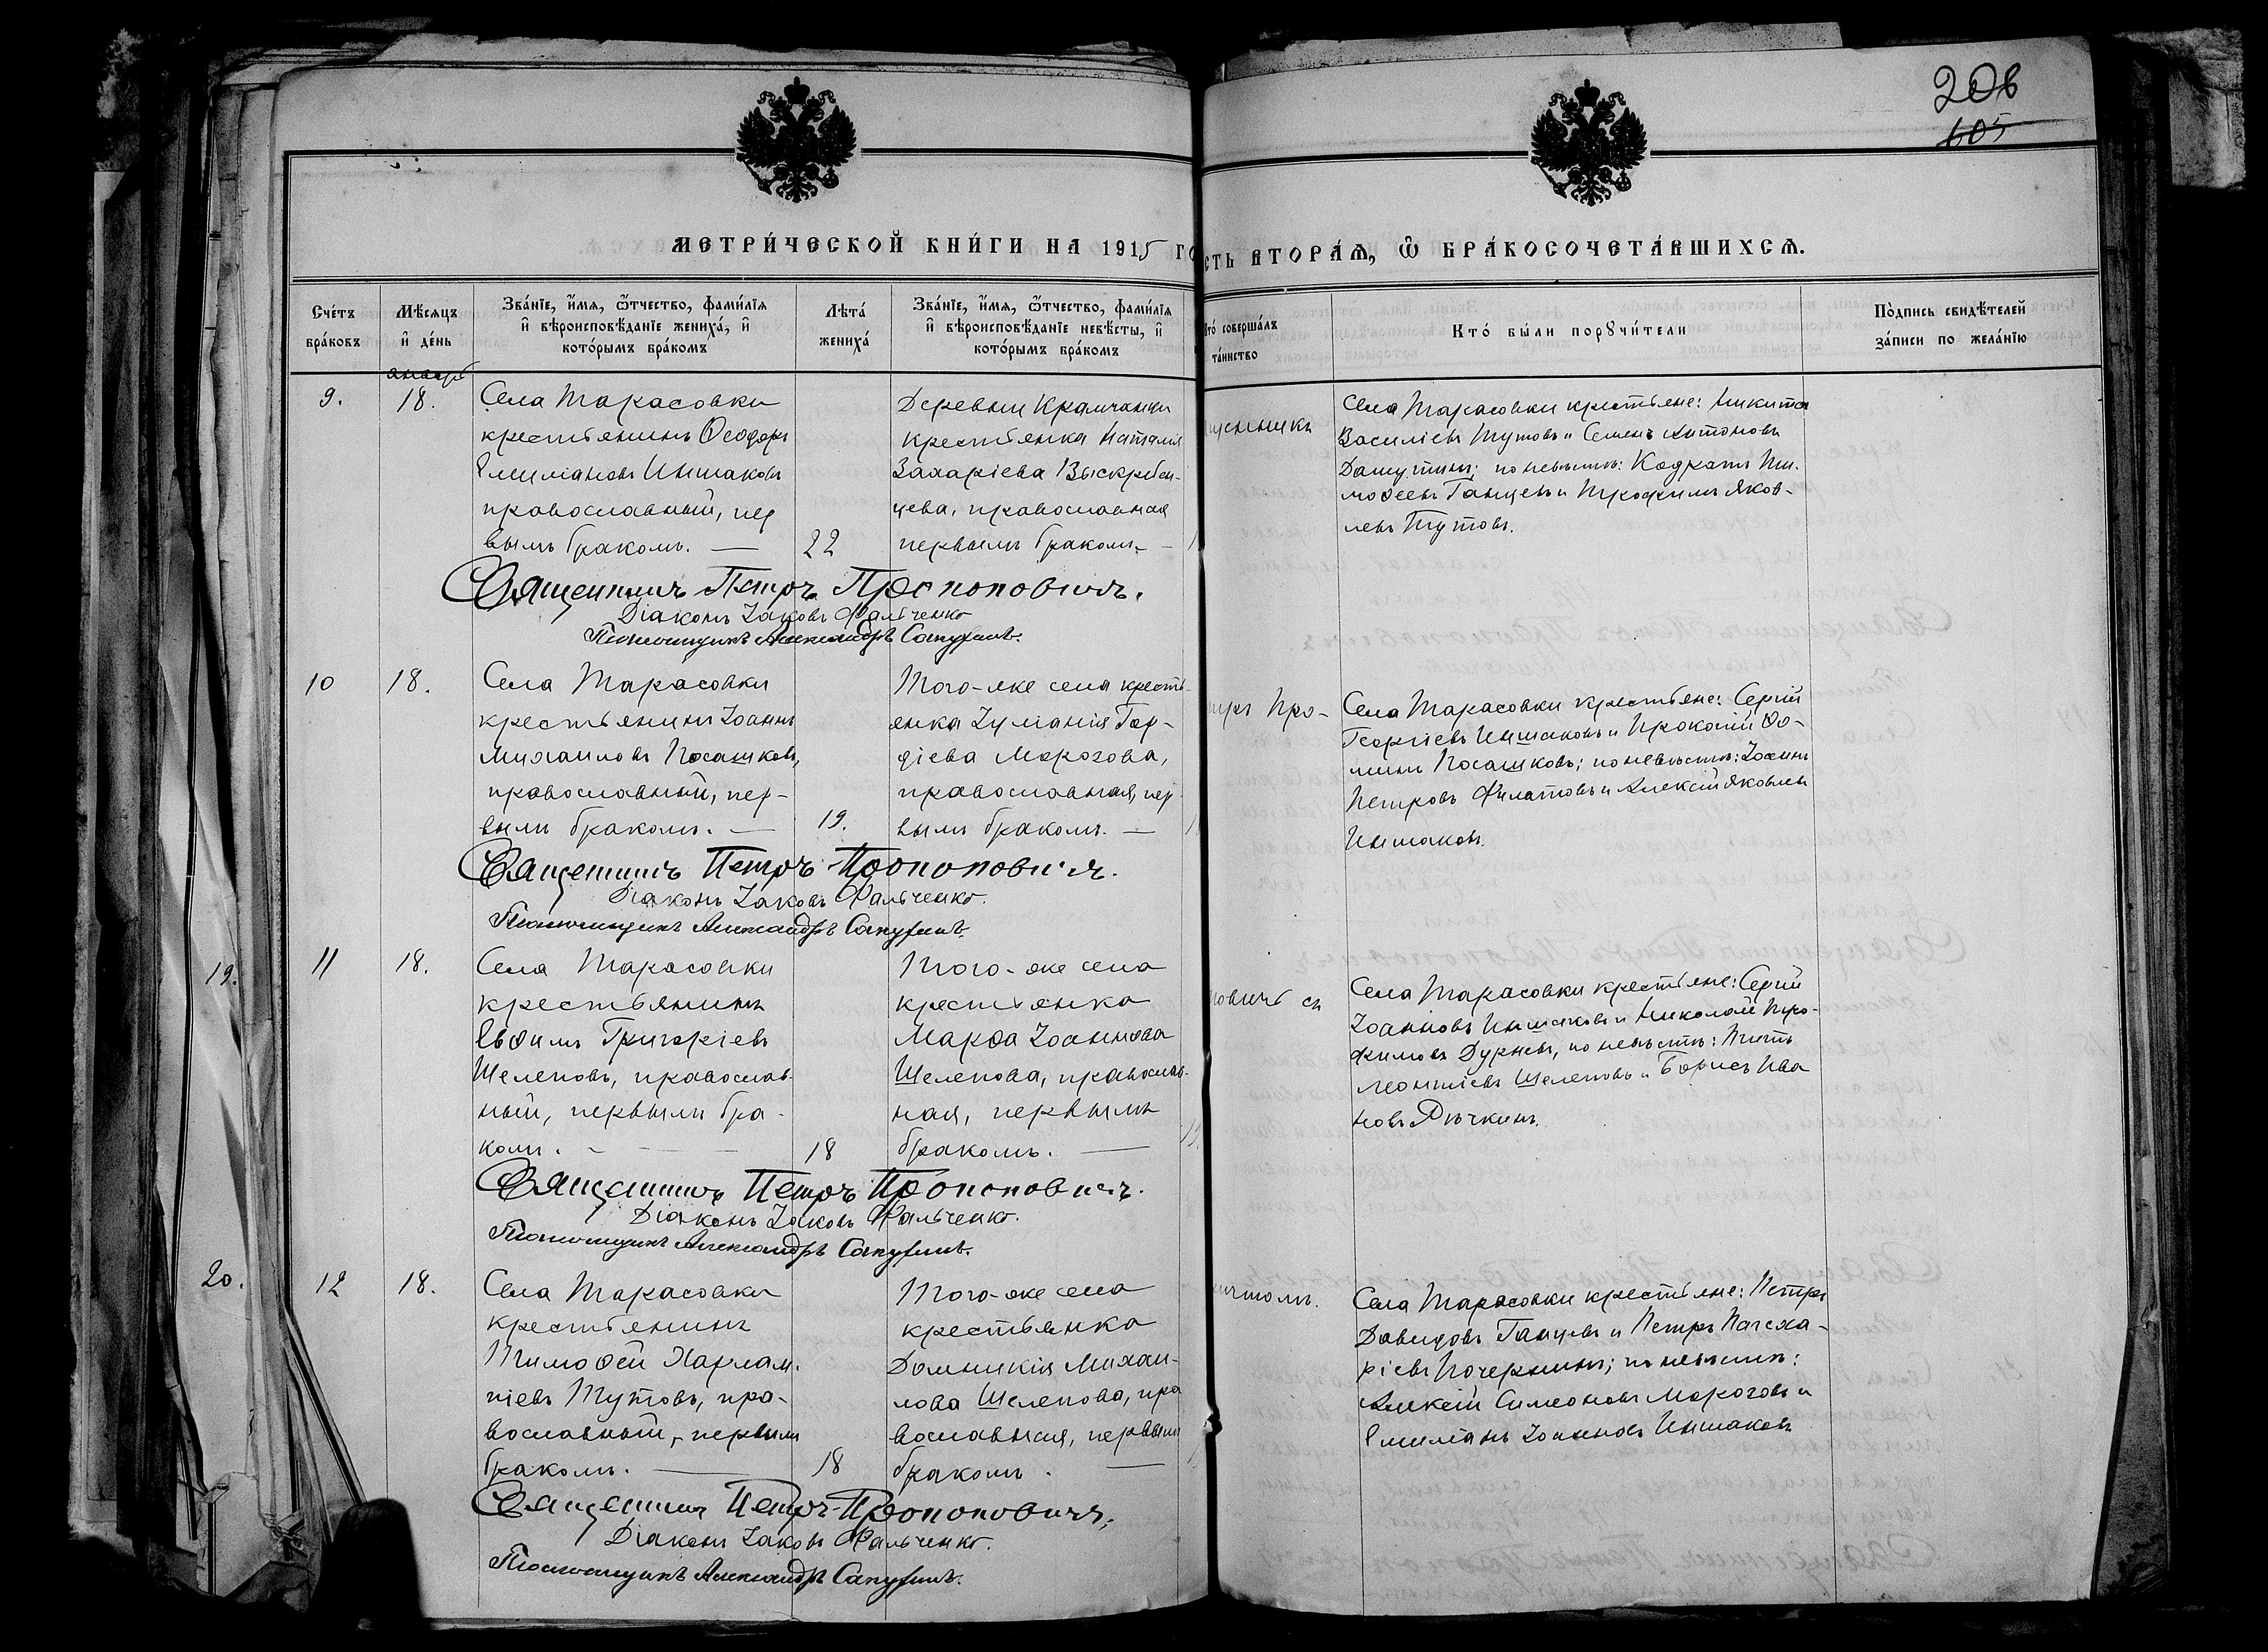 206
605
МЕТРИ́ЧЕСКОЙ КНИ́ГИ НА 1915 ГО
СТЬ ВТОРА́Ѧ, Ѽ БРА́КОСОЧЕТА́ВШИХСѦ.
Сче́тъ бра́ковъ
Мѣ́сяцъ и҆ де́нь
Зва́нїе, и҆́мя, ѻ҆́тчество, фами́лїя и҆ вѣроисповѣ́данїе жениха́, и҆ кото́рымъ бра́комъ
Лѣта́ жениха́
Зва́нїе, и҆́мя, ѻ҆́тчество, фами́лїя и҆ вѣроисповѣ́данїе невѣ́сты, и҆ кото́рымъ бра́комъ
то́ соверша́лъ та́инство
Кто́ бы́ли порꙋчи́тели
По́дпись свидѣ́телей за́писи по жела́нїю
январь
9.
18.
Села Тарасовки
крестьянинъ Ѳеодоръ
Емиліановъ Иншаковъ
православный, пер
вымъ бракомъ. —
22
Деревни Крамчанки
крестьянка Наталія
Захаріева Выскребен-
цева, православная
первымъ бракомъ. —
Села Тарасовки крестьяне: Никита
Василіевъ Тутовъ и Семенъ Антоновъ
Дашутинъ; по невѣстѣ: Кодратъ Ти-
моѳеевъ Ганцевъ и Трофимъ Яков-
левъ Тутовъ.
Священникъ Петръ Протопоповичъ.
Діаконъ Іаковъ Фальченко
Псаломщикъ Александръ
10
18.
Села Тарасовки
крестьянинъ Іоаннъ
Михаиловъ Посашковъ,
православный, пер-
вымъ бракомъ. —
19.
Того-же села кресть-
янка Іуліанія Гор-
діева Морозова,
православная, пер-
вымъ бракомъ. —
тръ Про-
Села Тарасовки крестьяне: Сергій
Георгіевъ Иншаковъ и Прокопій Ѳо-
минъ Посашковъ; по невѣстѣ: Іоаннъ
Петровъ Филатовъ и Алексій Яковлевъ
Иншаковъ.
Священникъ Петръ Протопоповичъ.
Діаконъ Іаковъ Фальченко.
Псаломщикъ Александръ
19.
11
18.
Села Тарасовки
крестьянинъ
Евѳимъ Григоріевъ
Шелеповъ, православ-
ный, первымъ бра-
комъ. — — —
18
Того-же села
крестьянка
Марѳа Іоаннова
Шелепова, православ-
ная, первымъ
бракомъ. —
повичъ съ
Села Тарасовки крестьяне: Сергій
Іоанновъ Иншаковъ и Николай Тро-
фимовъ Дурневъ, по невѣстѣ: Титъ
Леонтіевъ Шелеповъ и Борисъ Ива
новъ
Священникъ Петръ Протопоповичъ.
Діаконъ Іаковъ Фальченко.
Псаломщикъ Александръ
20.
12
18.
Села Тарасовки
крестьянинъ
Тимоѳей Харлам-
піевъ Тутовъ, пра-
вославный, первымъ
бракомъ. —
18
Того-же села
крестьянка
Домникія Михаи-
лова Шелепова, пра
вославная, первымъ
бракомъ. —
Села Тарасовки крестьяне: Петръ
Давидовъ Ганцевъ и Петръ
по невѣстѣ:
Алексій Симеоновъ Морозовъ и
Емиліанъ Іоанновъ Иншаковъ
Священникъ Петръ Протопоповичъ.
Діаконъ Іаковъ Фальченко.
Псаломщикъ Александръ